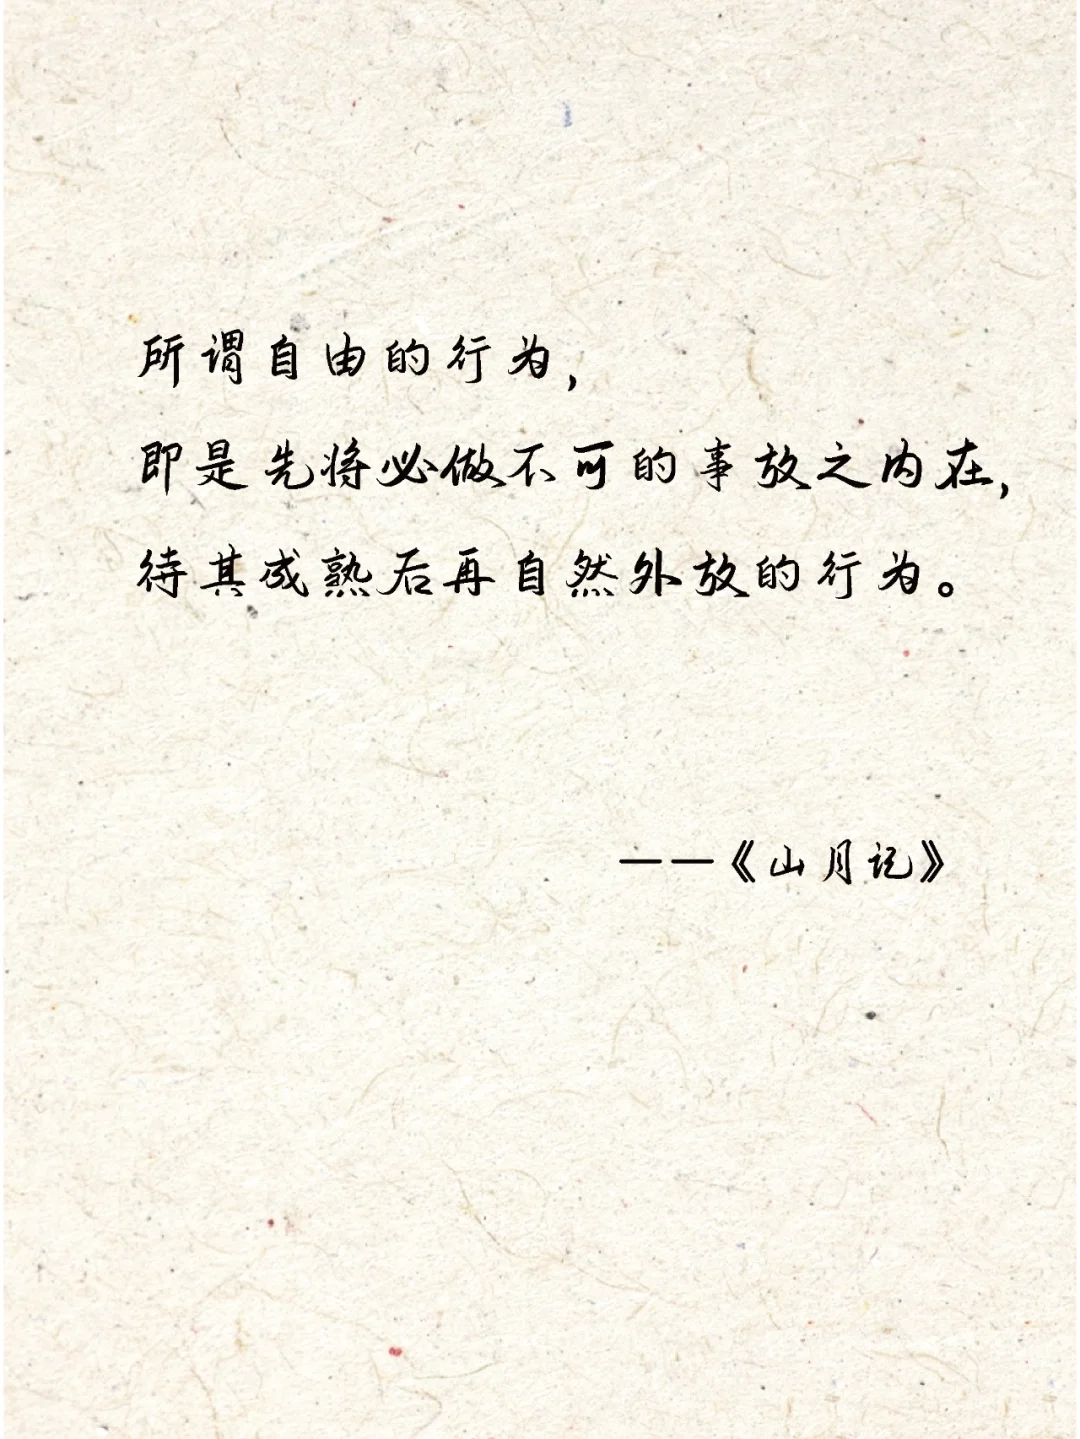 所谓自由的行为，
即是先将必做不可的事放之内在，
待其成熟后再自然外放的行为。
——《山月记》